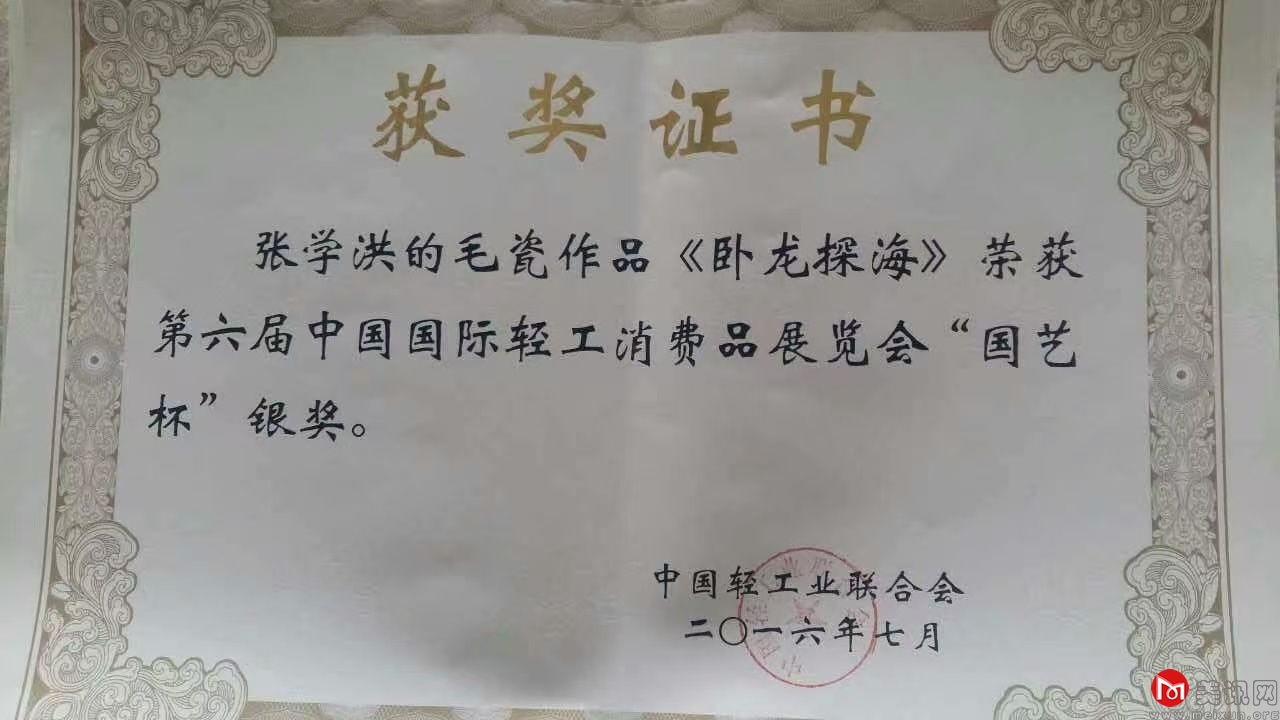 获奖证书
张学洪的毛瓷作品《卧龙探海》荣获
第六届中国国际轻工消费品展览会“国艺
杯”银奖。
中国轻工业联合会
二〇一六年七月
美讯网
www.meixun.org